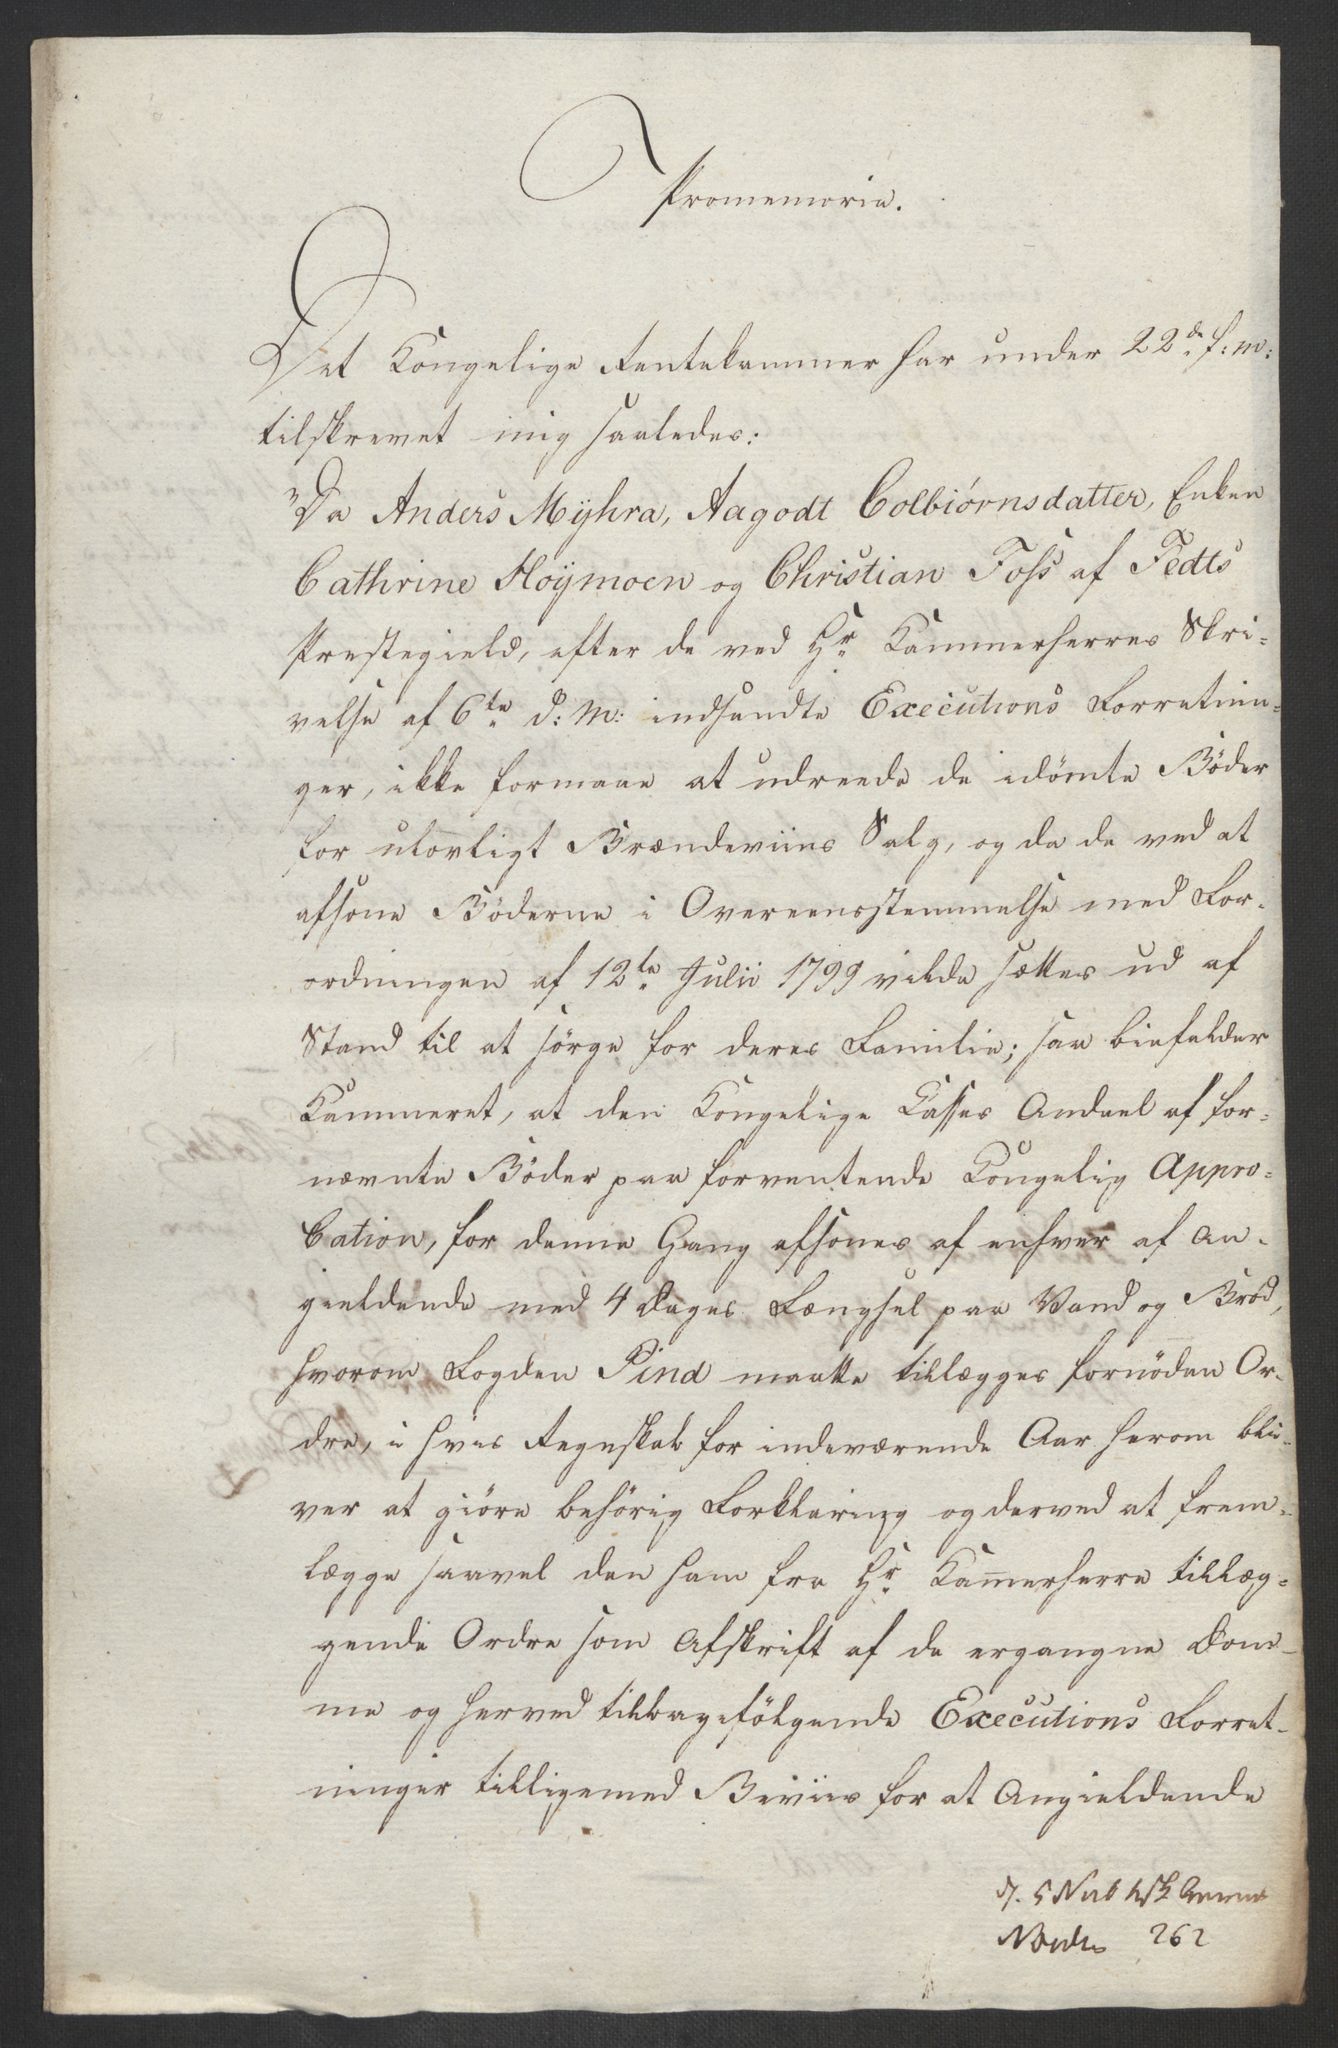 Promemoria.
Det Kongelige Rentekammer har under 22de f: m:
tilskrevet mig saaledes:
"Da Anders Myhra, Aagodt Colbiørnsdatter, Enken
Cathrine Høymoen og Christian Foss af Fedts
Prestegield, efter de ved Hr. Kammerherres Skri-
velse af 6te d: M: indsendte Executions Forretnin-
ger, ikke formaae at udreede de idømte Bøder
for ulovligt Brændeviins Salg, og da de ved at
afsone Bøderne i Overeensstemmelse med For-
ordningen af 12te Julii 1799 vilde sættes ud af
Stand til at sørge for deres Familie; saa biefalder
Kammeret, at den Kongelige Casses Andeel af for-
nævnte Bøder paa forventende Kongelig Appro-
bation, for denne Gang afsones af enhver af An-
gieldende med 4 Dages Fængsel paa Vand og Brød,
hvorom Fogden Pind maatte tillægges fornøden Or-
dre, i hvis Regnskab for indeværende Aar herom bli-
ver at giøre behørig Forklaring og derved at frem-
lægge saavel den ham fra Hr. Kamerherre tillæg-
gende Ordre som Afskrift af de ergangne Dom-
me og herved tilbagefølgende Executions Forret-
ninger tilligemed Beviis for at Angieldende
262